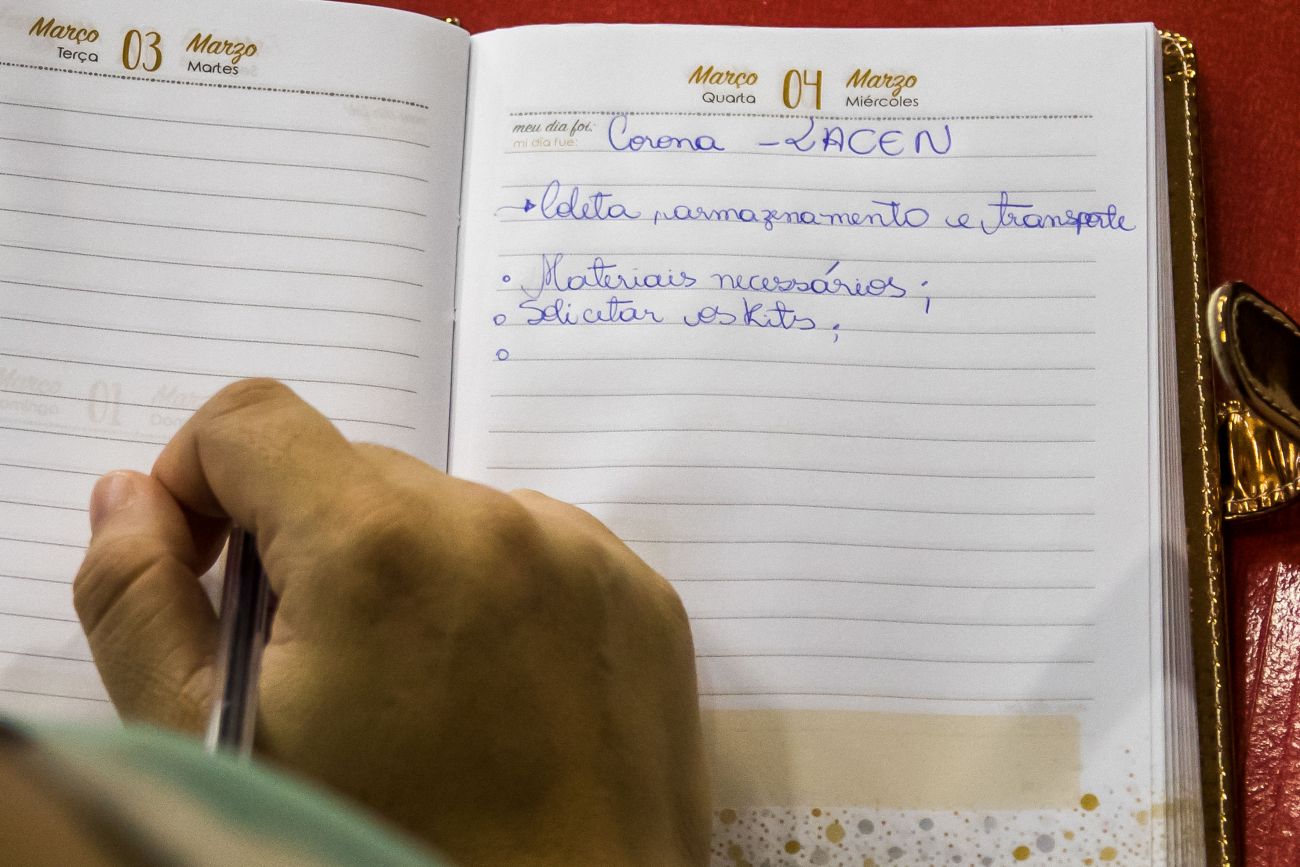 Março 03 Marzo
Terça Martes
Março 04 Marzo
Quarta Miércoles
meu dia foi: Corona - LACEN
mi día fue:
→ Coleta, armazenamento e transporte
o Materiais necessários;
o Solicitar os Kits;
o
Março 01